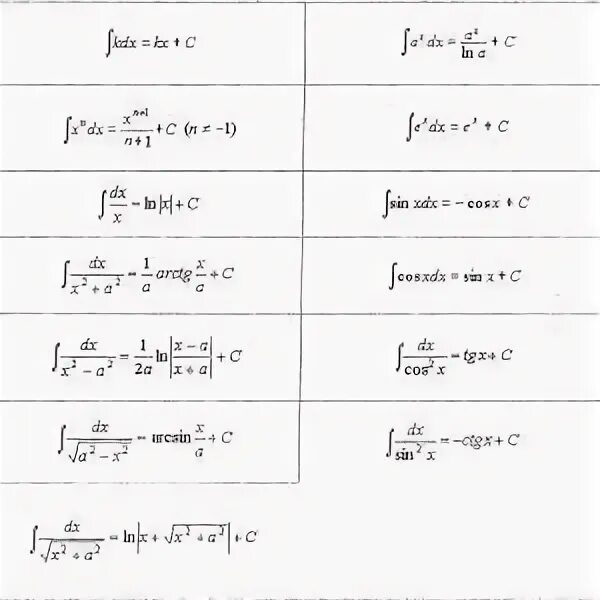 ∫kdx = kx + C
∫aˣ dx = aˣ/ln a + C
∫xⁿ dx = xⁿ⁺¹/n+1 + C (n ≠ -1)
∫eˣ dx = eˣ + C
∫dx/x = ln|x| + C
∫sin xdx = - cos x + C
∫dx/x² + a² = 1/a arctg x/a + C
∫cos xdx = sin x + C
∫dx/x² - a² = 1/2a ln|x - a/x + a| + C
∫dx/cos² x = tg x + C
∫dx/√a² - x² = arcsin x/a + C
∫dx/sin² x = -ctg x + C
∫dx/√x² + a² = ln|x + √x² + a²| + C